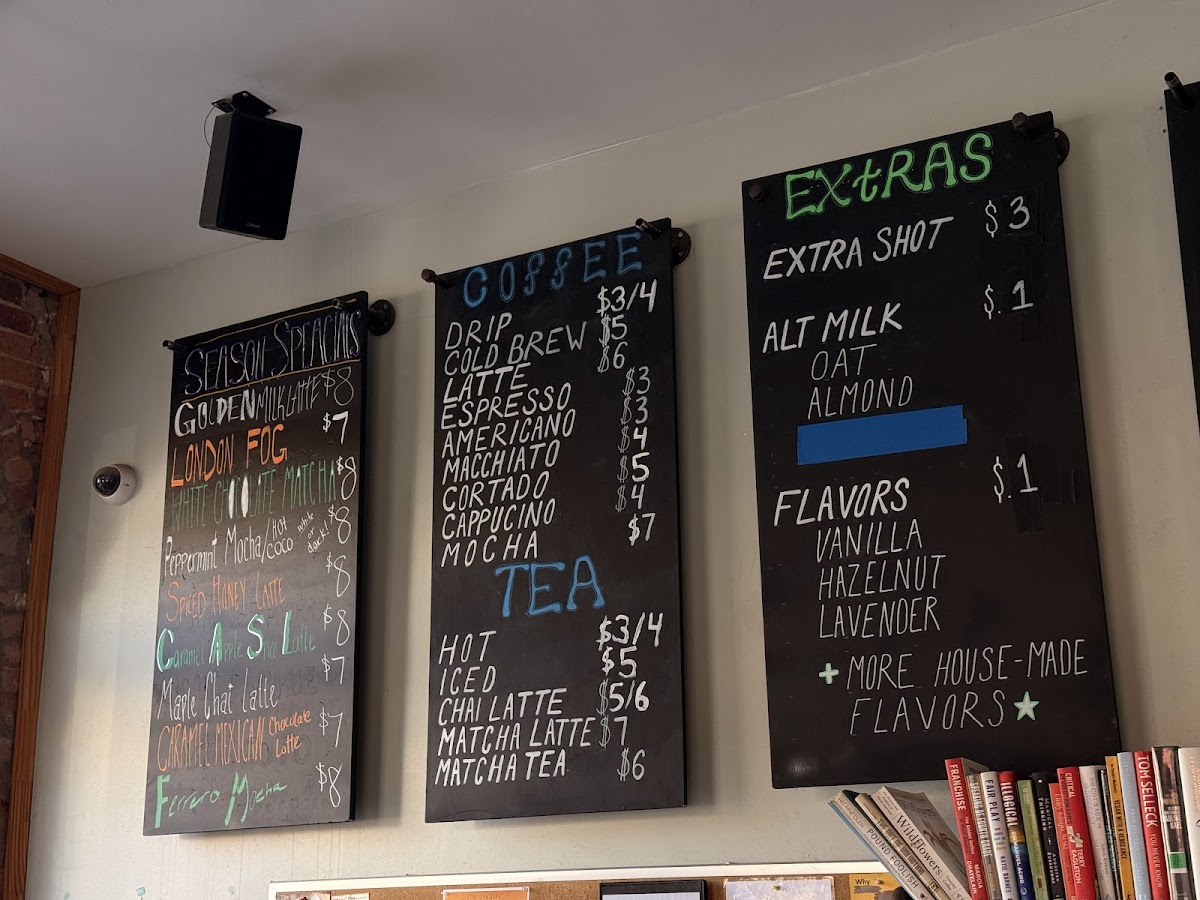 SEASON SPEACIALS
GOLDEN MILK LATTE $8
LONDON FOG $7
WHITE CHOCOLATE MATCHA $8
Peppermint Mocha/HOT COCO white or dark! $8
SPICED HONEY LATTE $8
Caramel Apple Spice Latte $8
Maple Chai Latte $7
CARAMEL MEXICAN Chocolate Latte $7
Ferraro Mocha $8
COFFEE
DRIP $3/4
COLD BREW $5
LATTE $6
ESPRESSO $3
AMERICANO $3
MACCHIATO $4
CORTADO $5
CAPPUCINO $4
MOCHA $7
TEA
HOT $3/4
ICED $5
CHAI LATTE $5/6
MATCHA LATTE $7
MATCHA TEA $6
EXtRAS
EXTRA SHOT $3
ALT MILK $.1
OAT
ALMOND
FLAVORS $.1
VANILLA
HAZELNUT
LAVENDER
+ MORE HOUSE-MADE
FLAVORS
POUND FOOLISH
Wildflowers
FRANCHISE
MARCIA CHATELAIN
FAIR PLAY
ILLOGICAL
CRITICAL
TERRY EAGLETON
TOM SELLECK
YOU NEVER KNOW
Why